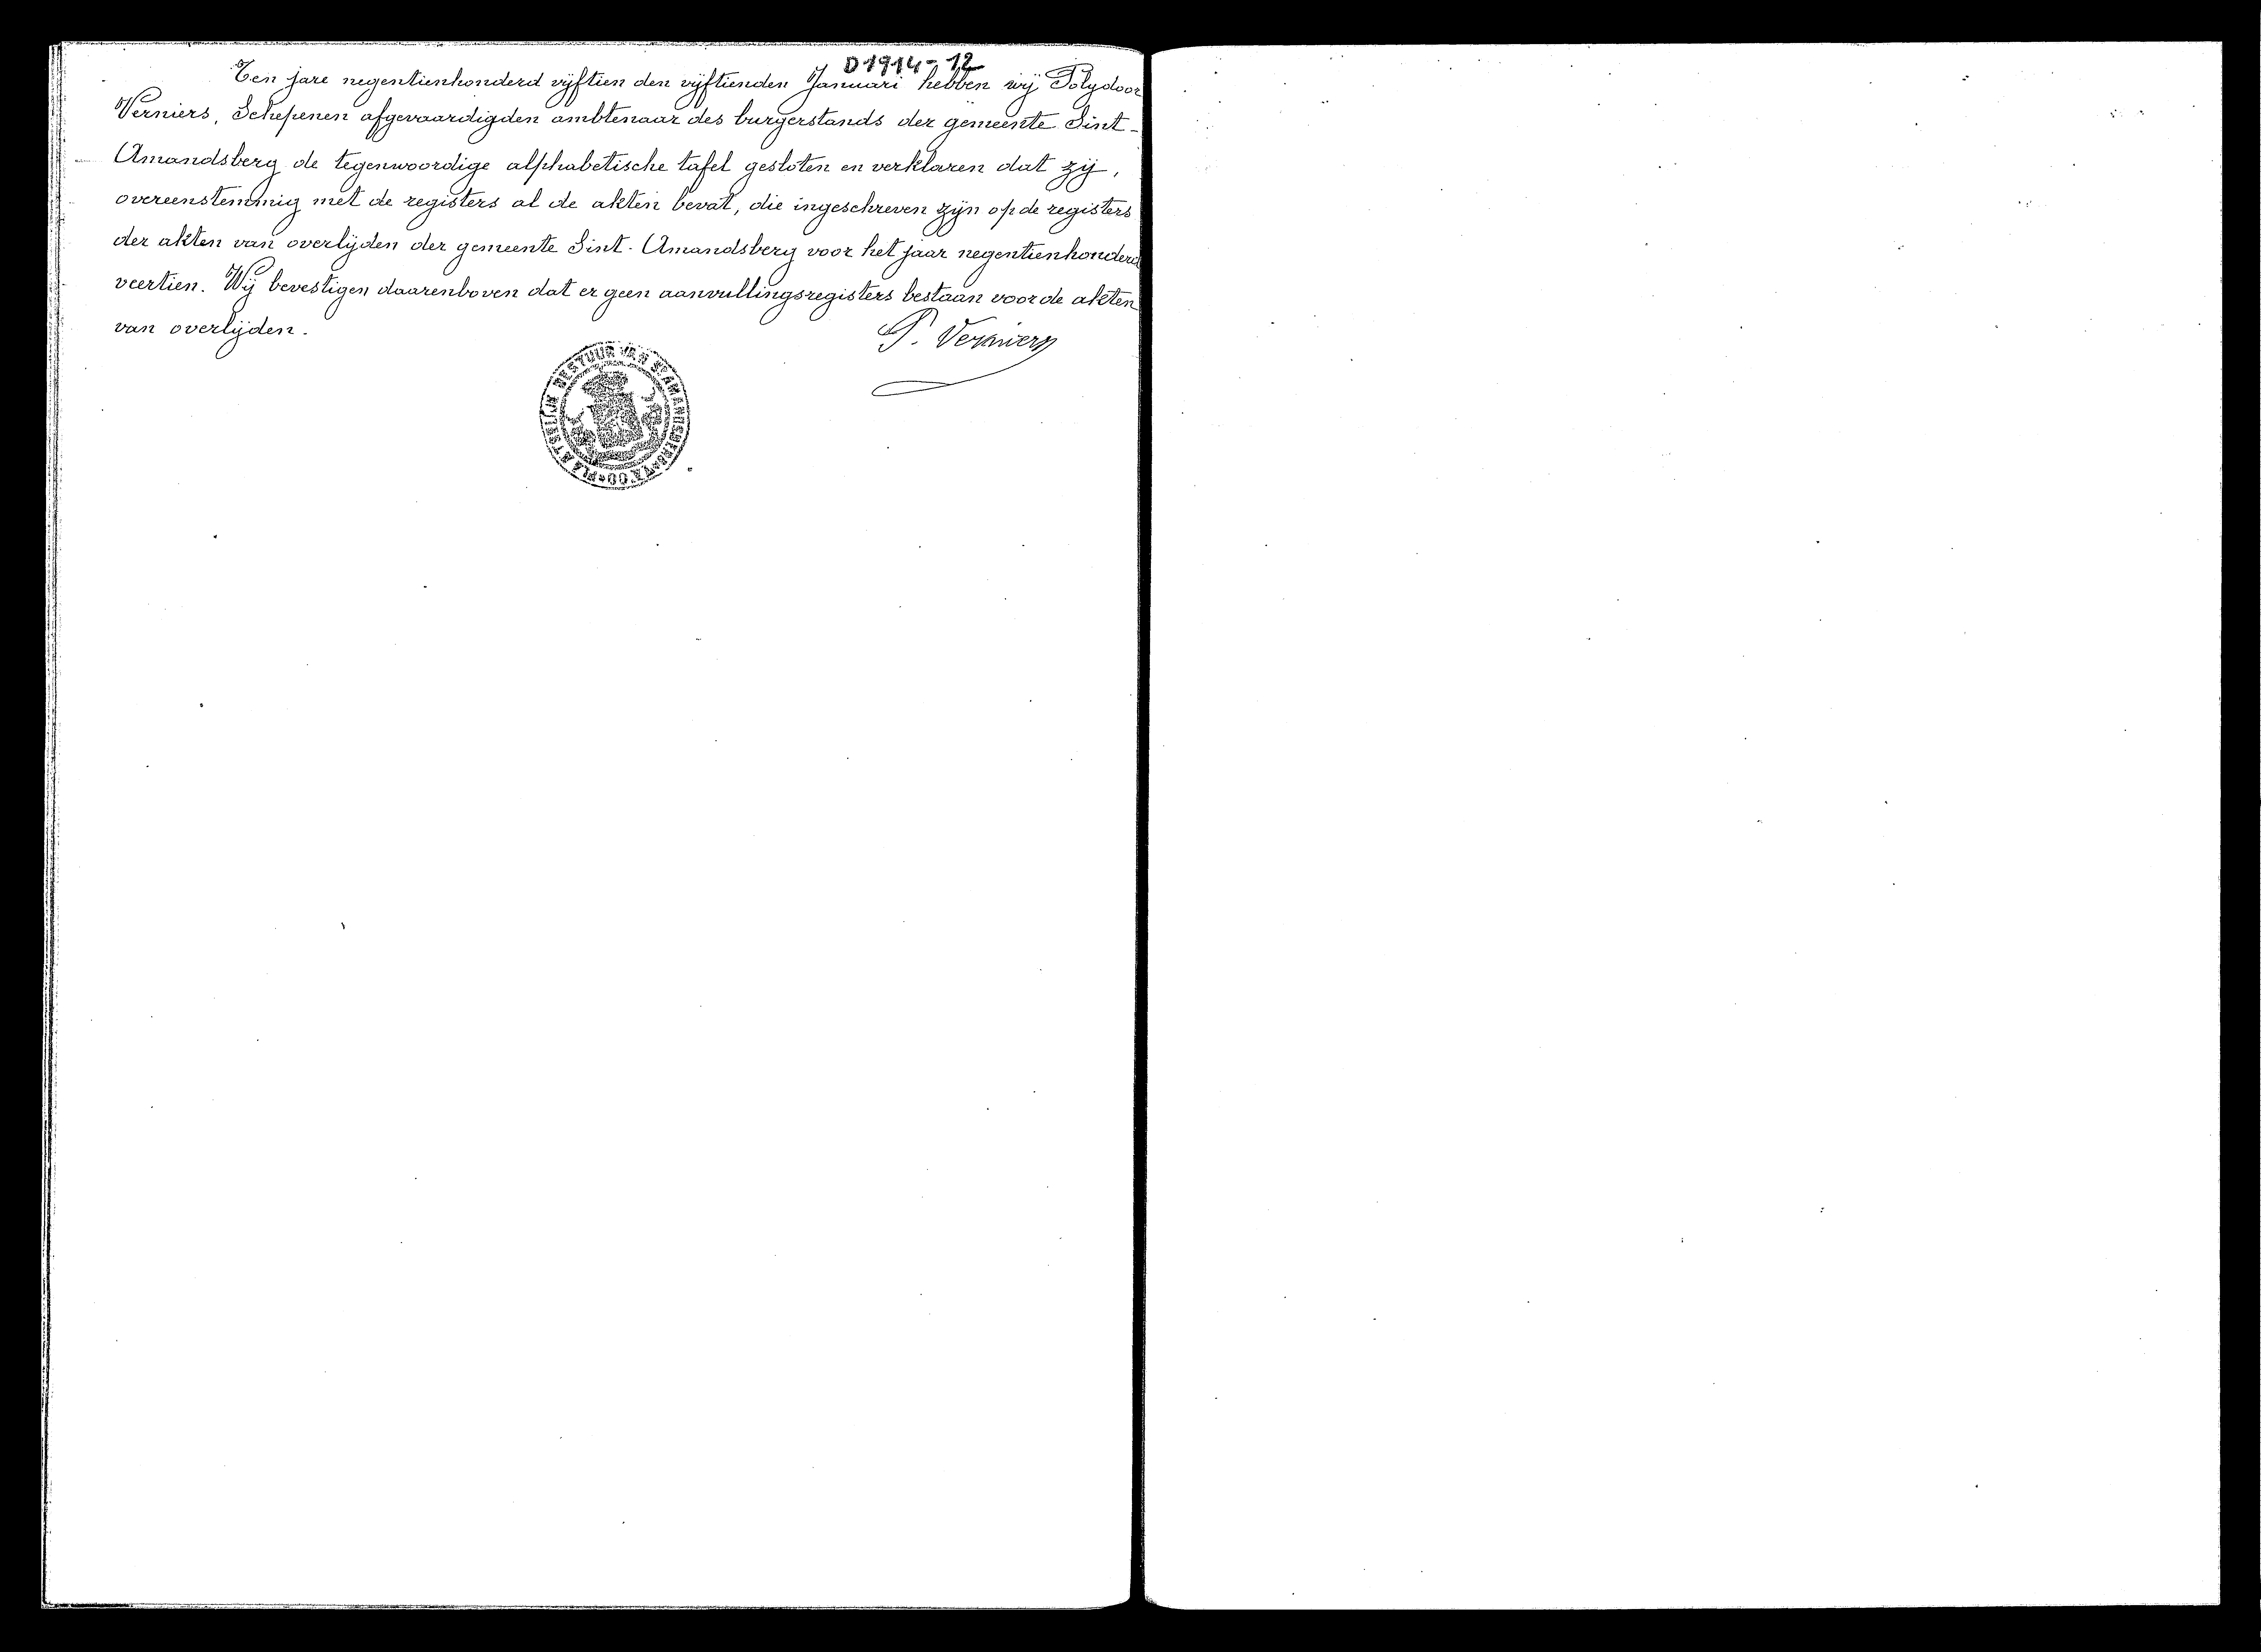 D1914-12
Ten jare negentienhonderd vijftien den vijftienden Januari hebben wij Polydoor
Verniers, Schepenen afgevaardigden ambtenaar des burgerstands der gemeente Sint-
Amandsberg de tegenwoordige alphabetische tafel gesloten en verklaren dat zij,
overeenstemmig met de registers al de akten bevat, die ingeschreven zijn op de registers
der akten van overlijden der gemeente Sint-Amandsberg voor het jaar negentienhonderd
veertien. Wij bevestigen daarenboven dat er geen aanvullingsregisters bestaan voor de akten
van overlijden.
P. Verniers
PLAATSELIJK BESTUUR VAN ST AMANDSBERG